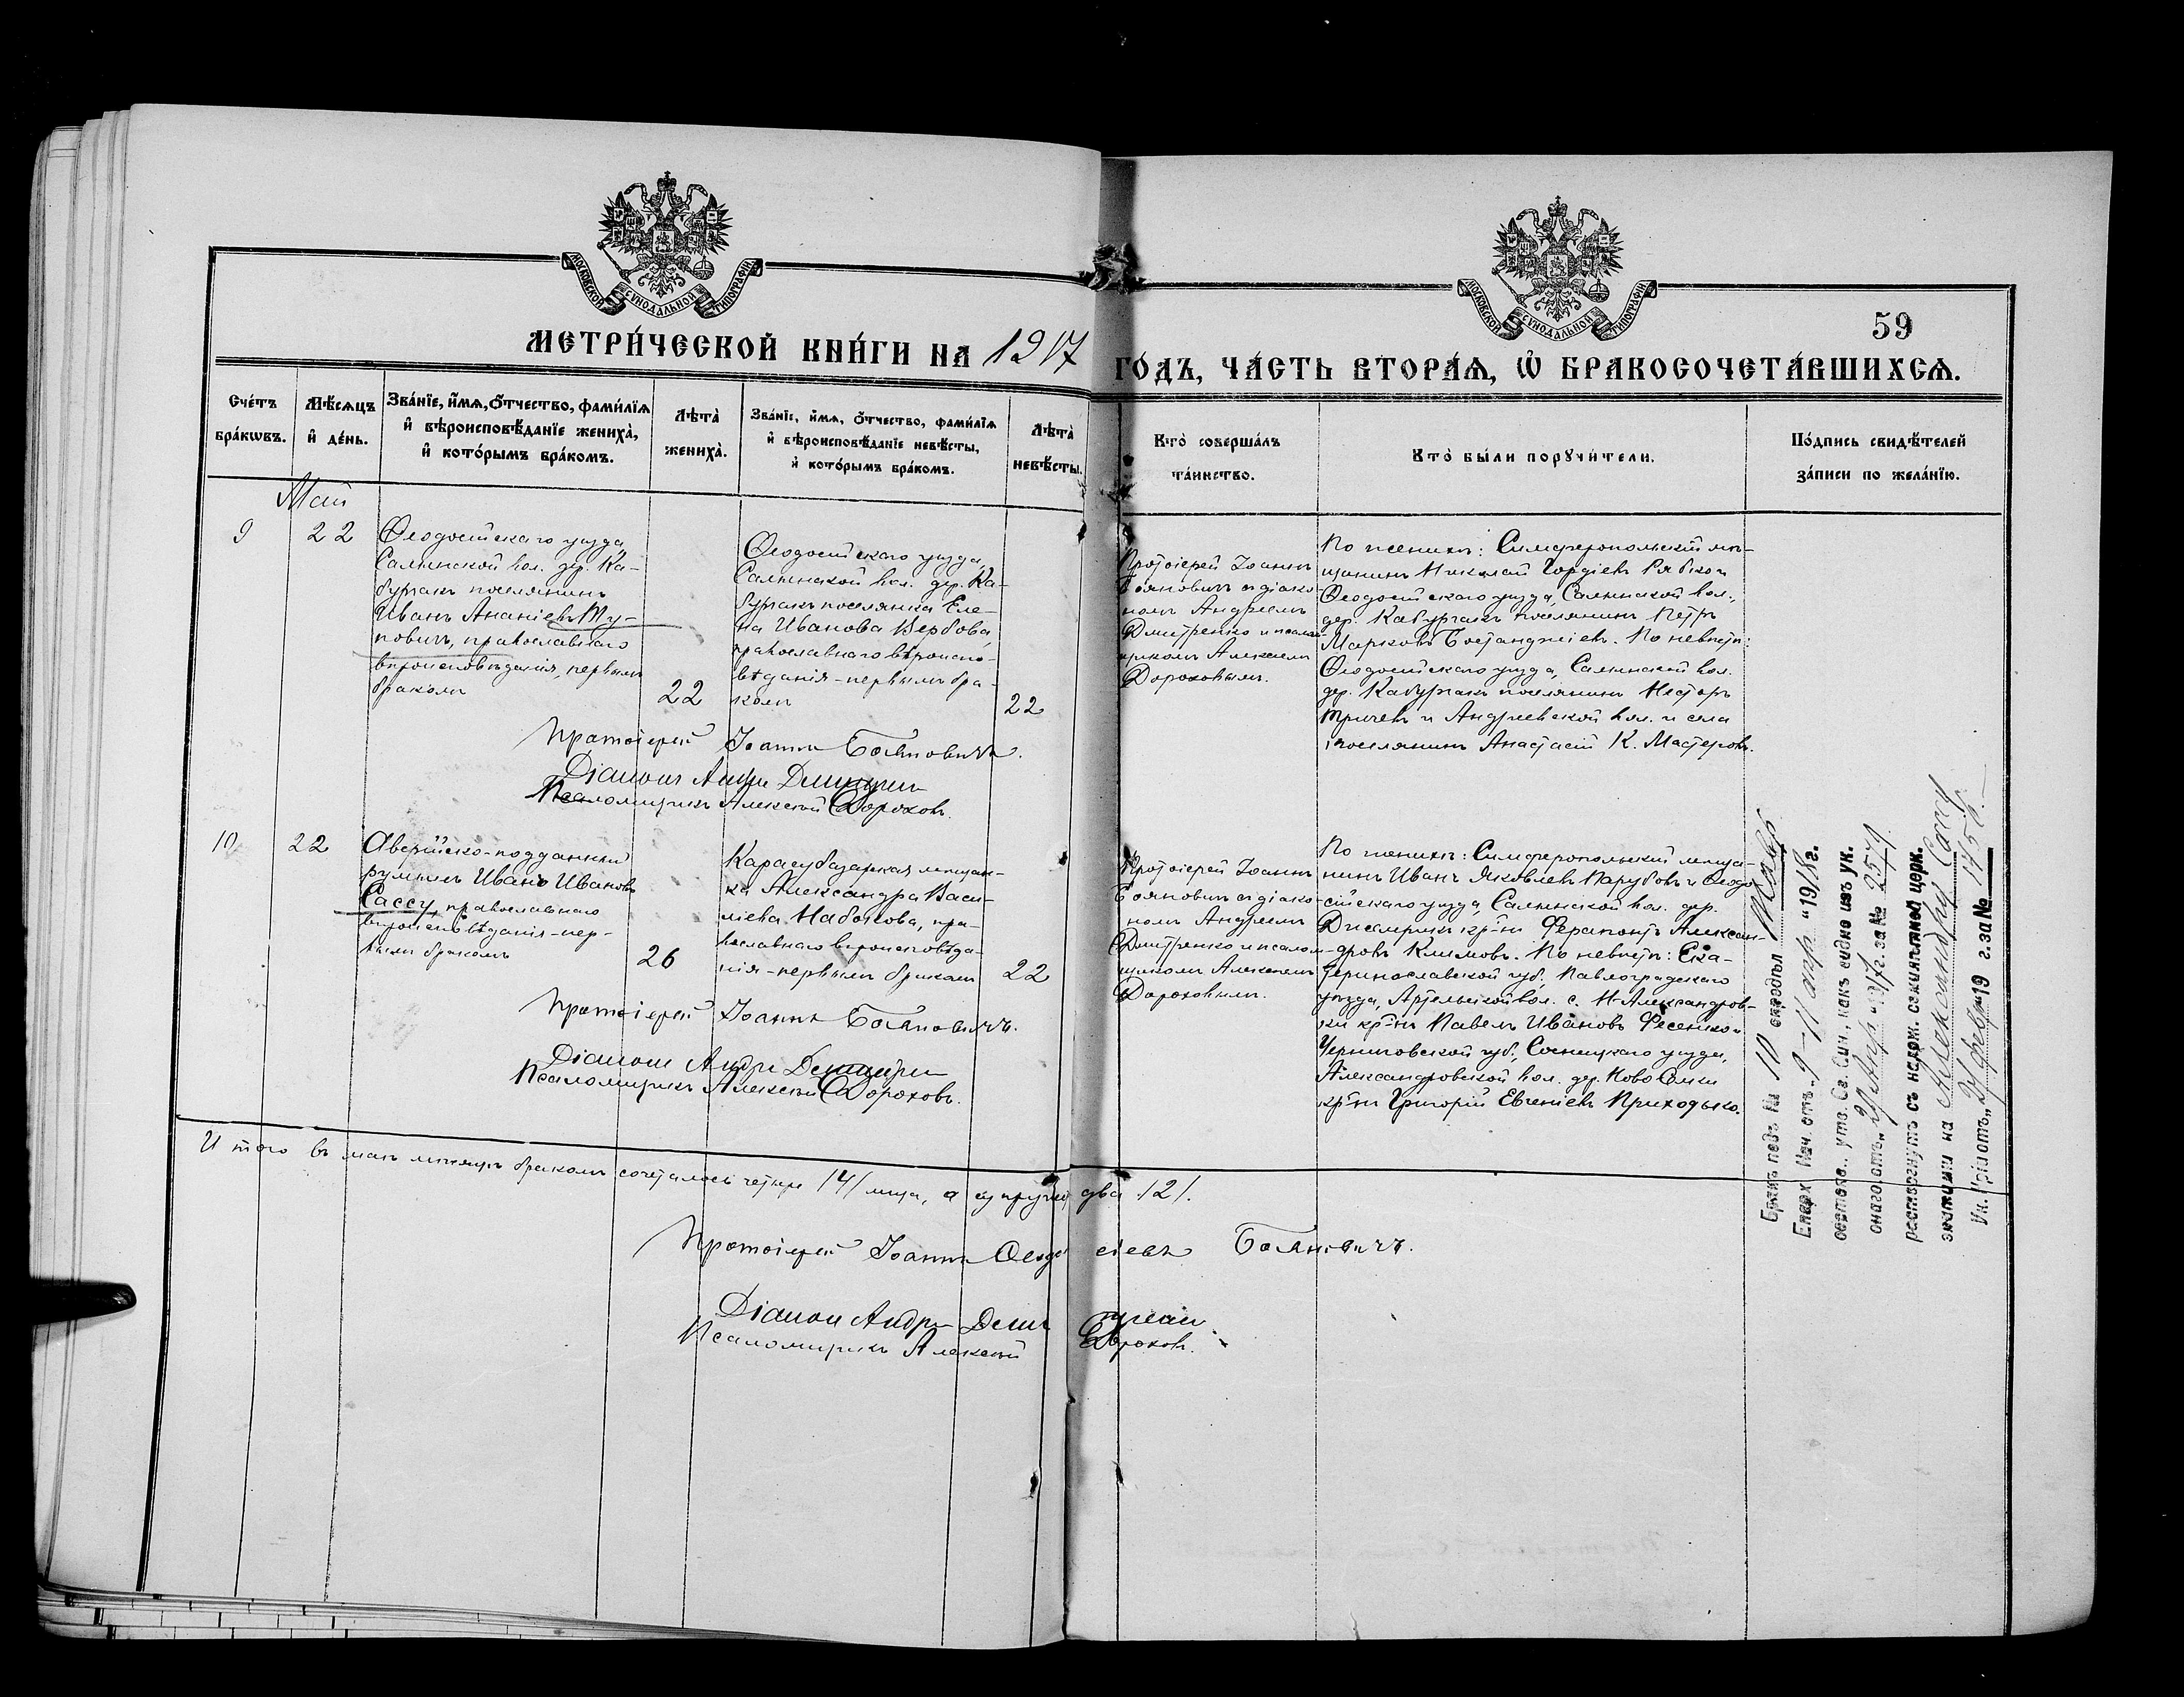 МОСКОВСКОЙ СѴНОДАЛЬНОЙ ТИПОГРАФІИ
МОСКОВСКОЙ СѴНОДАЛЬНОЙ ТИПОГРАФІИ
59
МЕТРИ́ЧЕСКОЙ КНИ́ГИ НА 1917 ГО́ДЪ, ЧА́СТЬ ВТОРА́Ѧ, Ѡ҆ БРАКОСОЧЕТА́ВШИХСѦ.
Сче́тъ
бра́кѡвъ.
Мѣ́сѧцъ
и҆ де́нь.
Зва́нїе, и҆́мѧ, ѻ҆́тчество, фами́лїѧ
и҆ вѣроисповѣ́данїе жениха̀,
и҆ кото́рымъ бра́комъ.
Лѣ́та̀
жениха̀.
Зва́нїе, и҆́мѧ, ѻ҆́тчество, фами́лїѧ
и҆ вѣроисповѣ́данїе невѣ́сты,
и҆ кото́рымъ бра́комъ.
Лѣ́та̀
невѣ́сты.
Кто̀ соверша́лъ
та́инство.
Кто̀ бы́ли порꙋчи́тели.
По́дпись свидѣ́телей
за́писи по жела́нїю.
Май
9
22
Ѳеодосійскаго уѣзда
Салынской вол. дер. Ка-
бурчакъ поселянинъ
Иванъ Ананіевъ Ту-
повичъ, православнаго
вѣроисповѣданія, первымъ
бракомъ
22
Ѳеодосійскаго уѣзда,
Салынской вол. дер. Ка-
бурчакъ поселянка Еле-
на Иванова Вербова
православнаго вѣроиспо-
вѣданія - первымъ бра-
комъ
22
Протоіерей Іоаннъ
Бояновичъ с діако-
номъ Андреемъ
Дмитренко и псалом-
щикомъ Алексѣемъ
Дороховымъ.
По женихѣ: Симферопольскій мѣ-
щанинъ Николай Гордіевъ Рябко и
Ѳеодосійскаго уѣзда, Салынской вол.,
дер. Кабурчакъ поселянинъ Петръ
Марковъ Бостанджіевъ. По невѣстѣ:
Ѳеодосійскаго уѣзда, Салынской вол.
дер. Кабурчакъ поселянинъ Несторъ
Тричевъ и Андреевской вол. и села
поселянинъ Анастасій К. Мастеровъ.
Протоіерей Іоаннъ Бояновичъ.
Діаконъ Андрей Дмитренко
Псаломщикъ Алексѣй Дороховъ.
10
22
Австрійско-подданный
румынъ Иванъ Ивановъ
Сассу, православнаго
вѣроисповѣданія - пер-
вымъ бракомъ
26
Карасубазарская мѣщан-
ка Александра Васи-
ліева Набокова, пра-
вославнаго вѣроисповѣда-
нія - первымъ бракомъ
22
Протоіерей Іоаннъ
Бояновичъ с діако-
номъ Андреемъ
Дмитренко и псалом-
щикомъ Алексѣемъ
Дороховымъ.
По женихѣ: Симферопольскій мѣща-
нинъ Иванъ Яковлевъ Парубовъ и Ѳеодо-
сійскаго уѣзда, Салынской вол. дер.
кр-нъ Ферапонтъ Алексан-
дровъ Климовъ. По невѣстѣ: Ека-
теринославской губ., Павлоградскаго
уѣзда, Артельской вол. с. Н-Александров-
ки кр-нъ Павелъ Ивановъ Фесенко и
Черниговской губ., Сосницкаго уѣзда,
Александровской вол. дер.
кр-нъ Григорій Евгеніевъ Приходько.
Протоіерей Іоаннъ Бояновичъ.
Діаконъ Андрей Дмитренко
Псаломщикъ Алексѣй Дороховъ.
Бракъ подъ № 10 опредѣл.
Епарх. Нач. отъ „9-11 апр “ 1918 г.
состояв., утв. Св. Син., какъ видно изъ ук.
онаго отъ „ Апр “ 1917 г. за № 2571
расторгнутъ съ церк.
на Александру Сассу
Ук. отъ „ февр “ 19 г. за № 1456.
Итого въ маѣ мѣсяцѣ бракомъ сочеталось четыре /4/ лица, а супружествъ два /2/.
Протоіерей Іоаннъ Ѳеодосіевъ Бояновичъ.
Діаконъ Андрей Дмитренко
Псаломщикъ Алексѣй Дороховъ.